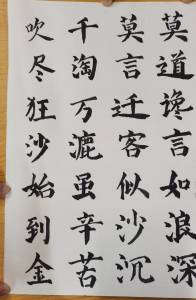 莫道谗言如浪深
莫言迁客似沙沉
千淘万漉虽辛苦
吹尽狂沙始到金